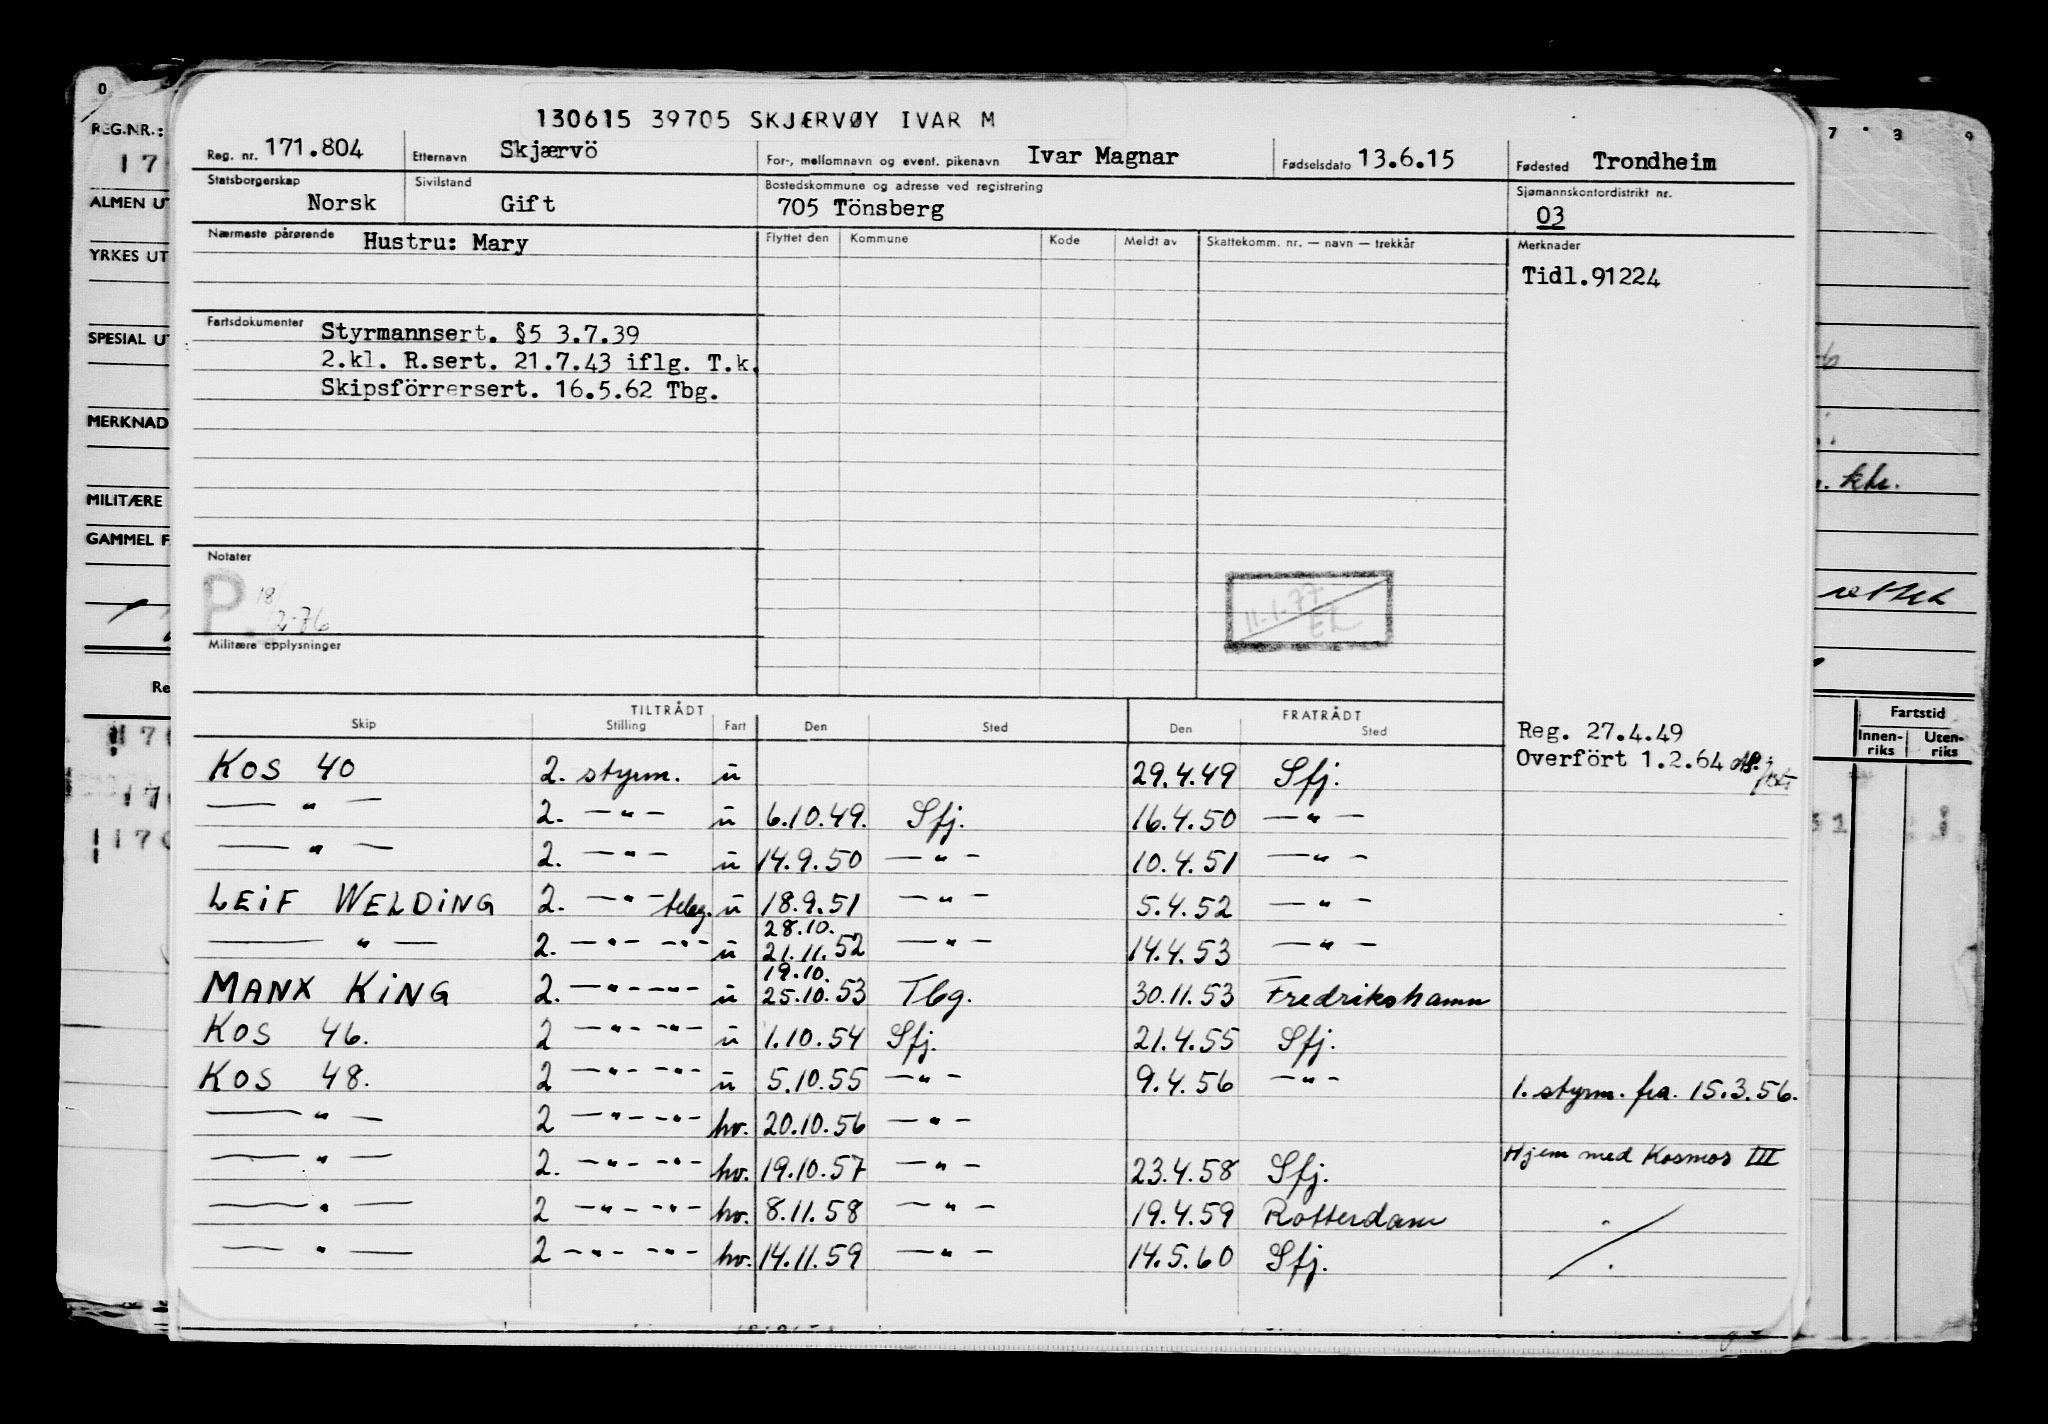 130615 39705 SKJÆRVØY IVAR M
Reg. nr. 171.804 Etternavn Skjærvö For-, mellomnavn og event. pikenavn Ivar Magnar Fødselsdato 13.6.15 Fødested Trondheim
Statsborgerskap Norsk Sivilstand Gift Bostedskommune og adresse ved registrering 705 Tönsberg Sjømannskontordistrikt nr. 03
Nærmeste pårørende Hustru: Mary Flyttet den Kommune Kode Meldt av Skattekomm. nr. — navn — trekkår Merknader
Tidl.91224
Fartsdokumenter Styrmannsert. §5 3.7.39
2.kl. R.sert. 21.7.43 iflg. T.k.
Skipsförrersert. 16.5.62 Tbg.
Notater
P 18/2-76
11-1-77
EL
Militære opplysninger
TILTRÅDT FRATRÅDT
Skip Stilling Fart Den Sted Den Sted
Reg. 27.4.49
Overfört 1.2.64
KOS 40 2. styrm. u 29.4.49 Sfj.
— " — 2. — " — u 6.10.49. Sfj. 16.4.50 — " —
— " — 2. — " — u 14.9.50 — " — 10.4.51 — " —
LEIF WELDING 2. — " — teleg. u 18.9.51 — " — 5.4.52 — " —
28.10.
— " — 2. — " — — " — u 21.11.52 — " — 14.4.53 — " —
19.10.
MANX KING 2. — " — — " — u 25.10.53 Tbg. 30.11.53 Fredrikshamn
KOS 46. 2 — " — — " — u 1.10.54 Sfj. 21.4.55 Sfj.
KOS 48. 2 — " — — " — u 5.10.55 — " — 9.4.56 — " — 1. styrm. fra 15.3.56.
— " — 2 — " — — " — hv. 20.10.56 — " —
— " — 2. — " — — " — hv. 19.10.57 — " — 23.4.58 Sfj. Hjem med Kosmos III
— " — 2 — " — — " — hv. 8.11.58 — " — 19.4.59 Rotterdam
— " — 2 — " — — " — hv. 14.11.59 — " — 14.5.60 Sfj.
0
REG.NR.:
17
ALMEN UT
YRKES UT
SPESIAL UT
MERKNAD
MILITÆRE
GAMMEL F
Re
7 3 9
khr.
Fartstid
Innen-riks Uten-riks